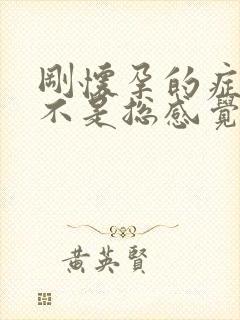 剛懷孕的症
不是總感覺
黃英賢